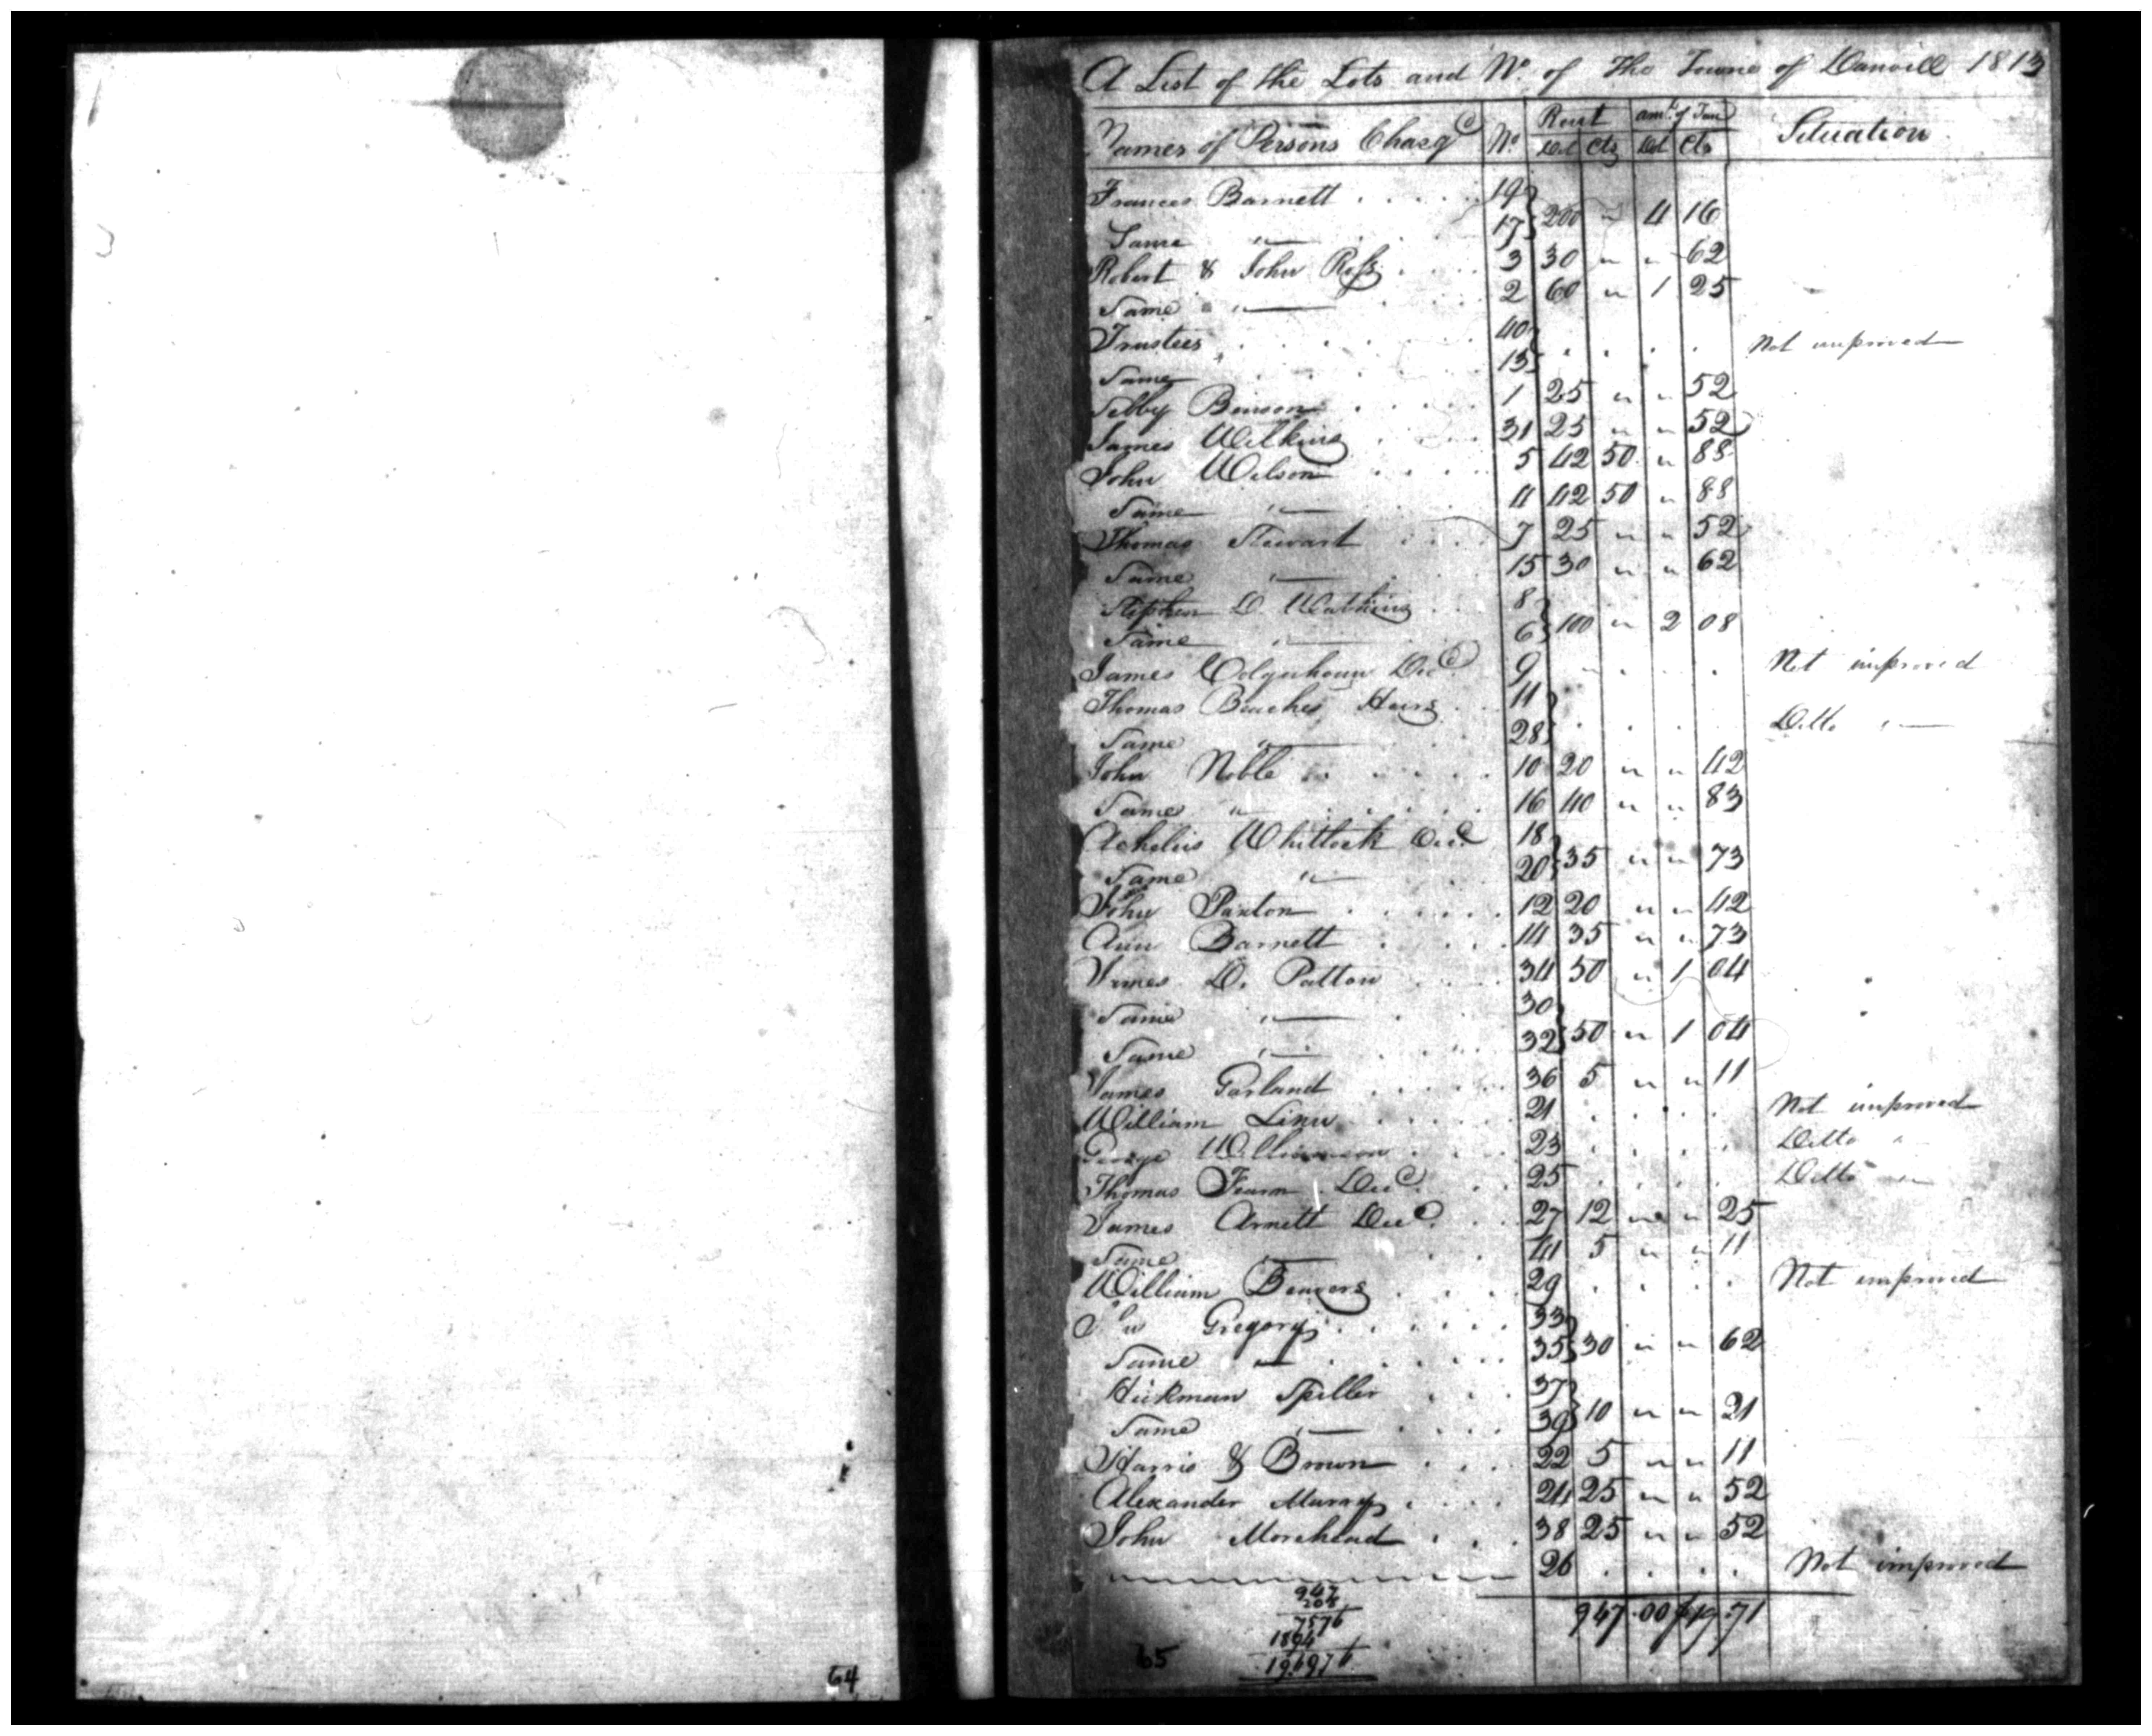 A List of the Lots and No. of The Towne of Danvill 1813
Names of Persons Chargd No. Rent Dol Cts amt. of Tax Dol Cts Situation
Frances Barnett 19 } 200 " 4 16
Same " 17 }
Robert & John Ross 3 30 " " 62
Same " " 2 60 " 1 25
Trustees 40 } Not improved
Same 13 }
Selby Benson 1 25 " " 52
James Wilkins 31 25 " " 52
John Wilson 5 42 50 " 88
Same " 4 42 50 " 88
Thomas Stewart 7 25 " " 52
Same " 15 30 " " 62
Stephen D. Watkins 8 } 100 " 2 08
Same " 6 }
James Colquhoun Decd 9 Not improved
Thomas Beaches Heirs 11 } Ditto "
Same " 28 }
John Noble 10 20 " " 42
Same " 16 40 " " 83
Achelus Whitlock Decd 18 } 35 " " 73
Same " 20 }
John Paxton 12 20 " " 42
Ann Barnett 14 35 " " 73
James D. Patton 34 50 " 1 04
Same " 30 } 50 " 1 04
Same " 32 }
James Garland 36 5 " " 11
William Linn 21 Not improved
George Williamson 23 Ditto "
Thomas Fearn Decd. 25 Ditto "
James Arnett Decd. 27 12 " " 25
Same 41 5 " " 11
William Beavers 29 Not improved
Gregory 33 } 30 " " 62
Same 35 }
Hickman Spiller 37 } 10 " " 21
Same " 39 }
Harris & Brown 22 5 " " 11
Alexander Murray 24 25 " " 52
John Morehead 38 25 " " 52
26 Not improved
947 947.00 $19.71
208
7576
1894
19697 6
65
64